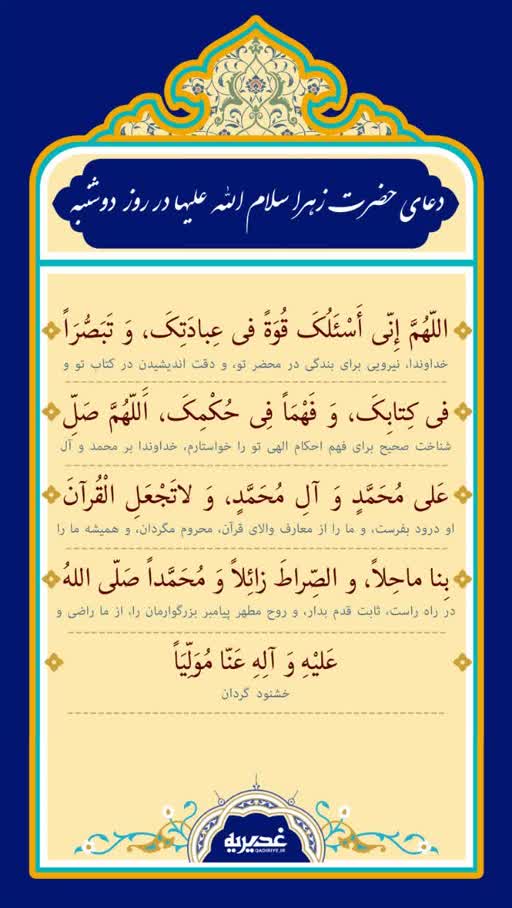 دعای حضرت زهرا سلام الله علیها در روز دوشنبه
اللّهُمَّ إِنّی أَسْئَلُکَ قُوَةً فی عِبادَتِکَ، وَ تَبَصُّرَاً
خداوندا، نیرویی برای بندگی در محضر تو، و دقت اندیشیدن در کتاب تو و
فی کِتابِکَ، وَ فَهْمَاً فِی حُکْمِکَ، اَللّهُمَّ صَلِّ
شناخت صحیح برای فهم احکام الهی تو را خواستارم، خداوندا بر محمد و آل
عَلی مُحَمَّدٍ وَ آلِ مُحَمَّدٍ، وَ لاتَجْعَلِ الْقُرآنَ
او درود بفرست، و ما را از معارف والای قرآن، محروم مگردان، و همیشه ما را
بِنا ماحِلاً، و الصِّراطَ زائِلاً وَ مُحَمَّداً صَلَّی اللهُ
در راه راست، ثابت قدم بدار، و روح مطهر پیامبر بزرگوارمان را، از ما راضی و
عَلَیْهِ وَ آلِهِ عَنّا مُوَلِّیَاً
خشنود گردان
غدیریه
QADIRIYE.IR